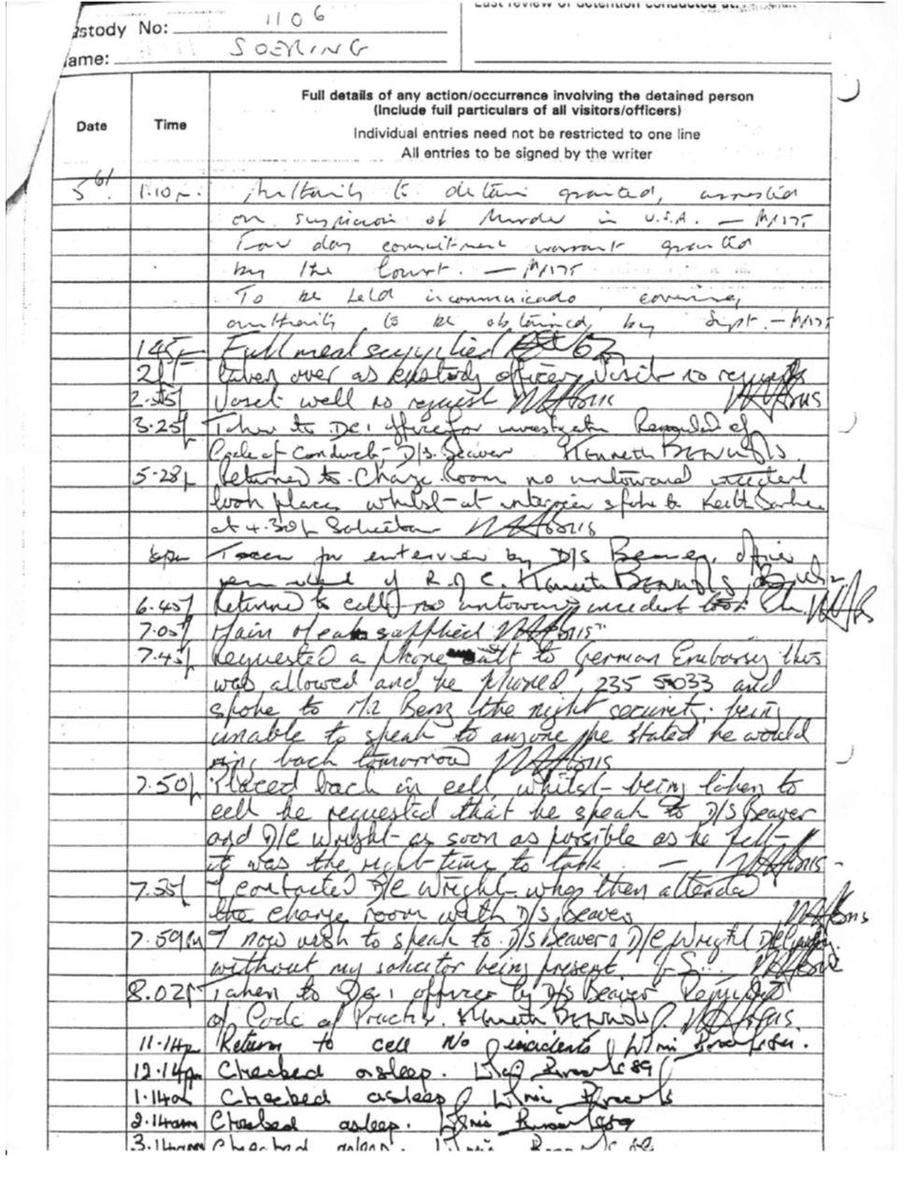 Last review of detention conducted at:
Custody No: 1106
Name: SOERING
Date
Time
Full details of any action/occurrence involving the detained person
(Include full particulars of all visitors/officers)
Individual entries need not be restricted to one line
All entries to be signed by the writer
1.10p. Authority to detain granted, arrested
on suspicion of Murder in U.S.A. —
Four day commitment warrant granted
by the Court. —
To be held incommunicado covering
authority to be obtained by Supt. —
145p Full meal supplied
2p taken over as custody officer, Visit no requests
2.55p Visit well no request
3.25p Taken to DCI office for investigation Reminded of
Code of Conduct - D/S. Beaver Kenneth Beever D/S.
5-28p Returned to Charge Room no untoward incident
took place whilst at interview spoke to Keith
at 4.30p Solicitor
6pm Taken for interview by D/S Beaver, officer
Kenneth
6.45p Returned to cell no untoward incident took
7.05p Main meal supplied
7.45p Requested a phone call to German Embassy this
was allowed and he phoned 235 5033 and
spoke to Mr Benz the night security. being
unable to speak to anyone he stated he would
ring back tomorrow
7.50p Placed back in cell, whilst being taken to
cell he requested that he speak to D/S Beaver
and D/C Wright as soon as possible as he felt
it was the right time to talk. —
7.55p I contacted D/C Wright who then attended
the charge room with D/S Beaver
7.59pm I now wish to speak to D/S Beaver & D/C Wright
without my solicitor being present
8.02p Taken to DCI office by D/S Beaver Reminded
of Code of Practice. Kenneth
11.14p Return to cell No incidents
12.14am Checked asleep.
1.14am Checked asleep
2.14am Checked asleep.
3.14am Checked asleep.